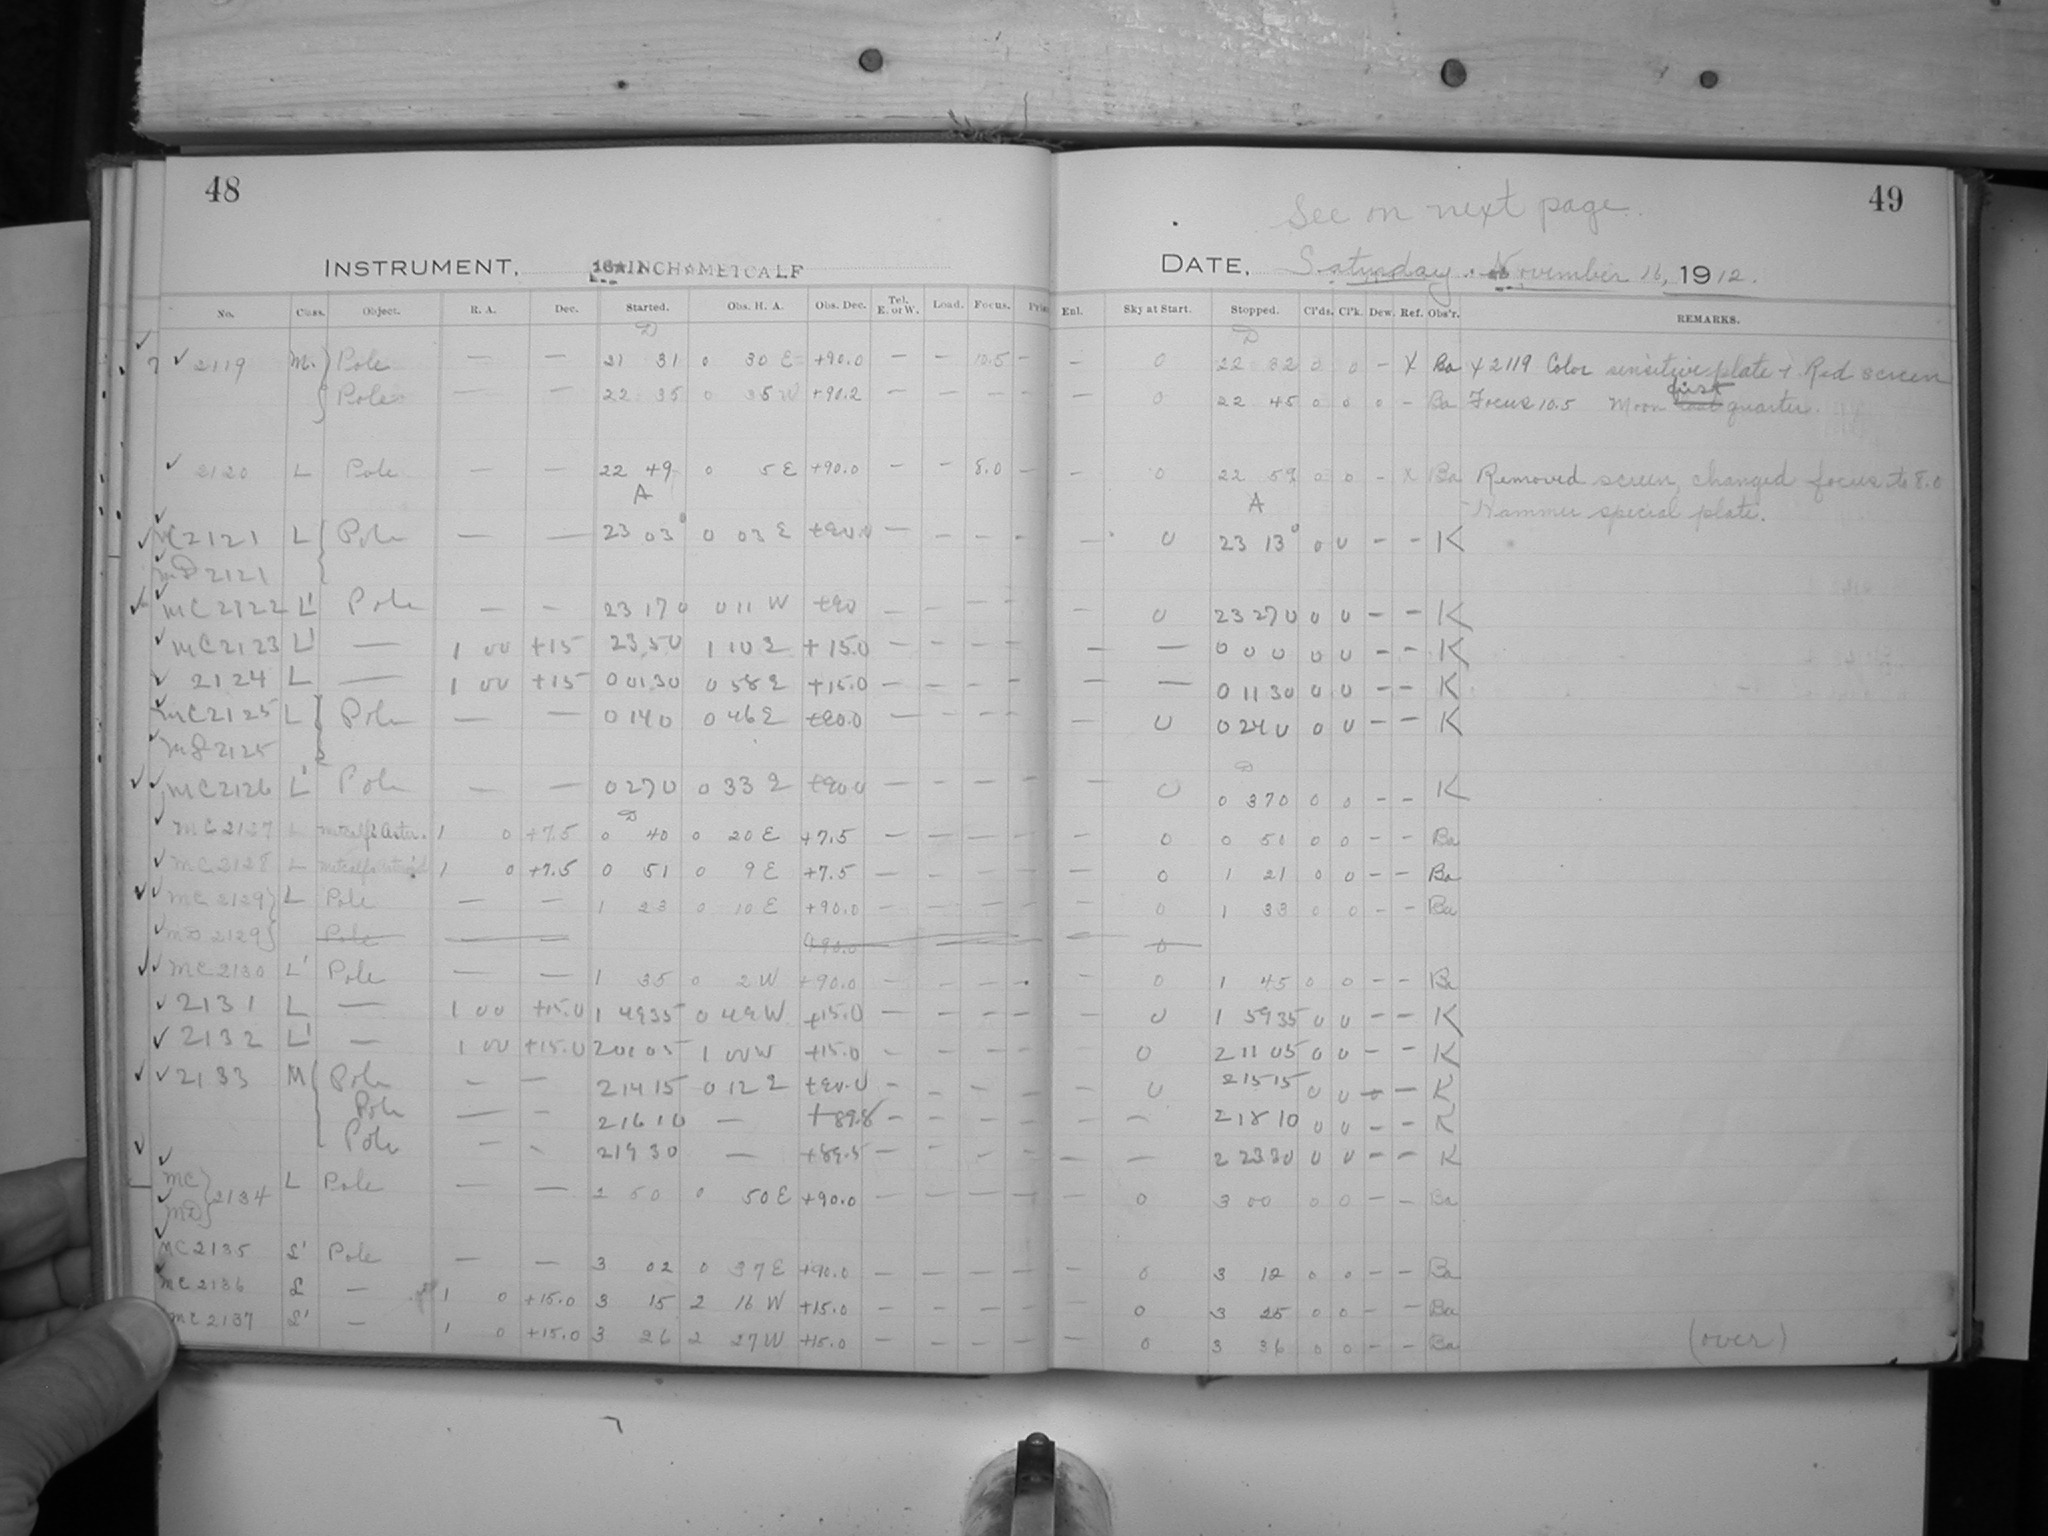 48
INSTRUMENT, 16 INCH METCALF
No. Class. Object. R. A. Dec. Started. Obs. H. A. Obs. Dec. Tel. E. or W. Load. Focus.
D
2119 M. Pole — — 21 31 0 30 E +90.0 — — 10.5 —
Pole — — 22 35 0 35 W +90.2 — — — —
2120 L Pole — — 22 49 0 5 E +90.0 — — 8.0 —
A
MC2121 L Pole — — 23 03 0 0 03 E +90.0 — — — —
MD2121
MC2122 L' Pole — — 23 17 0 0 11 W +90 — — — —
MC2123 L' — 1 00 +15 23 50 1 10 E +15.0 — — — —
2124 L — 1 00 +15 0 01 30 0 58 E +15.0 — — — —
MC2125 L Pole — — 0 14 0 0 46 E +90.0 — — — —
2125
MC2126 L' Pole — — 0 27 0 0 33 E +90.0 — — — —
D
MC2127 L Metcalf's Aster. 1 0 +7.5 0 40 0 20 E +7.5 — — — —
MC2128 L Metcalf's Asteroid 1 0 +7.5 0 51 0 9 E +7.5 — — — —
MC2129 L Pole — — 1 23 0 10 E +90.0 — — — —
MD2129 Pole — — +90.0 — — — —
MC2130 L' Pole — — 1 35 0 2 W +90.0 — — — —
2131 L — 1 00 +15.0 1 49 35 0 49 W +15.0 — — — —
2132 L' — 1 00 +15.0 2 01 05 1 00 W +15.0 — — — —
2133 M Pole — — 2 14 15 0 12 E +90.0 — — — —
Pole — — 2 16 10 — +89.8 — — — —
Pole — — 2 19 30 — +89.5 — — — —
MC MD 2134 L Pole — — 2 50 0 50 E +90.0 — — — —
MC2135 L' Pole — — 3 02 0 37 E +90.0 — — — —
MC2136 L — 1 0 +15.0 3 15 2 16 W +15.0 — — — —
MC2137 L' — 1 0 +15.0 3 26 2 27 W +15.0 — — — —
49
See on next page.
DATE, Saturday. November 16, 1912.
Enl. Sky at Start. Stopped. Cl'ds. Cl'k. Dew. Ref. Obs'r. REMARKS.
D
— 0 22 32 0 0 — X Ba X 2119 Color sensitive plate + Red screen
first
— 0 22 45 0 0 0 — Ba Focus 10.5 Moon last quarter.
— 0 22 59 0 0 — X Ba Removed screen, changed focus to 8.0
A Hammer special plate.
— 0 23 13 0 0 0 — — K
— 0 23 27 0 0 0 — — K
— — 0 0 0 0 0 — — K
— — 0 11 30 0 0 — — K
— 0 0 24 0 0 0 — — K
D
— 0 0 37 0 0 0 — — K
0 0 50 0 0 — — Ba
0 1 21 0 0 — — Ba
0 1 33 0 0 — — Ba
— 0
— 0 1 45 0 0 — — Ba
— 0 1 59 35 0 0 — — K
— 0 2 11 05 0 0 — — K
— 0 2 15 15 0 0 — — K
— — 2 18 10 0 0 — — K
— — 2 23 30 0 0 — — K
— 0 3 00 0 0 — — Ba
— 0 3 12 0 0 — — Ba
— 0 3 25 0 0 — — Ba
— 0 3 36 0 0 — — Ba
(over)